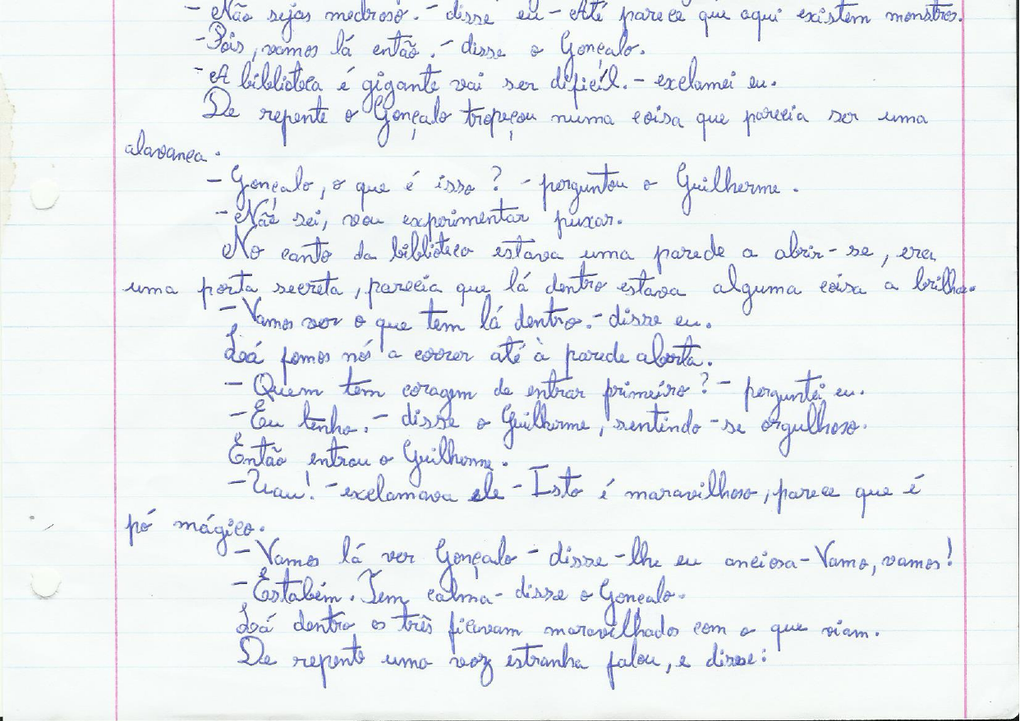 - Não sejas medroso. - disse eu - Até parece que aqui existem monstros.
- Pois, vamos lá então. - disse o Gonçalo.
- A biblioteca é gigante vai ser difícil. - exclamei eu.
De repente o Gonçalo tropeçou numa coisa que parecia ser uma
alavanca.
- Gonçalo, o que é isso? - perguntou o Guilherme.
- Não sei, vou experimentar puxar.
No canto da biblioteca estava uma parede a abrir-se, era
uma porta secreta, parecia que lá dentro estava alguma coisa a brilhar.
- Vamos ver o que tem lá dentro. - disse eu.
Lá fomos nós a correr até à parede aberta.
- Quem tem coragem de entrar primeiro? - perguntei eu.
- Eu tenho. - disse o Guilherme, sentindo-se orgulhoso.
Então entrou o Guilherme.
- Uau! - exclamava ele - Isto é maravilhoso, parece que é
pó mágico.
- Vamos lá ver Gonçalo - disse-lhe eu anciosa - Vamo, vamos!
- Estabém. Tem calma - disse o Goncalo.
Lá dentro os três ficavam maravilhados com o que viam.
De repente uma voz estranha falou, e disse: